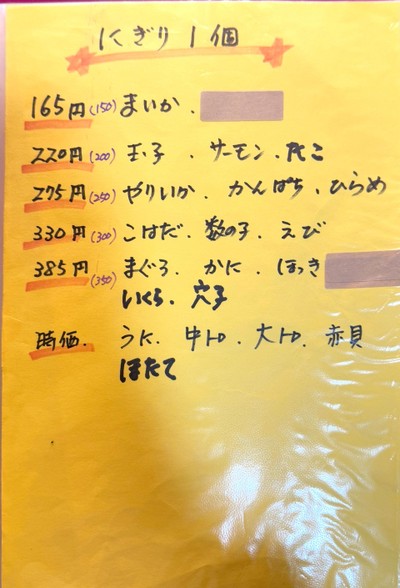 にぎり 1個
165円(150) まいか、
220円(200) 玉子、サーモン、たこ
275円(250) やりいか、かんぱち、ひらめ
330円(300) こはだ、数の子、えび
385円(350) まぐろ、かに、ほっき
いくら、穴子
時価、うに、中トロ、大トロ、赤貝
ほたて